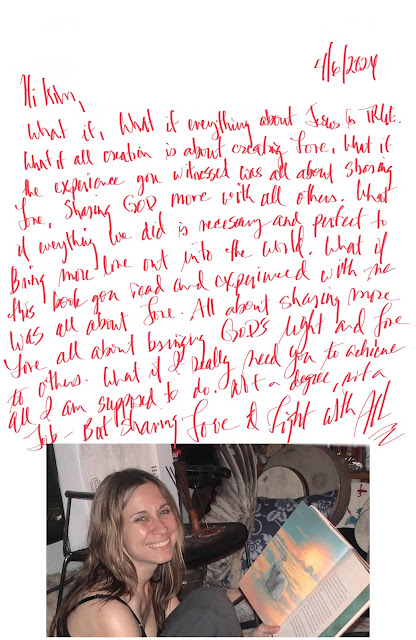 4/6/2024
Hi Kim,
What if, What if everything about Jesus is TRUE.
What if all creation is about creating Love, What if
the experience you witnessed was all about sharing
Love, Sharing GOD more with all others. What
if everything we did is necessary and perfect to
Bring more love out into the world. What if
this book you read and experienced with me
was all about Love. All about sharing more
Love all about bringing GOD'S light and love
to others. What if I really need you to achieve
all I am supposed to do. Not a degree, not a
Job - But sharing Love & Light with ALL